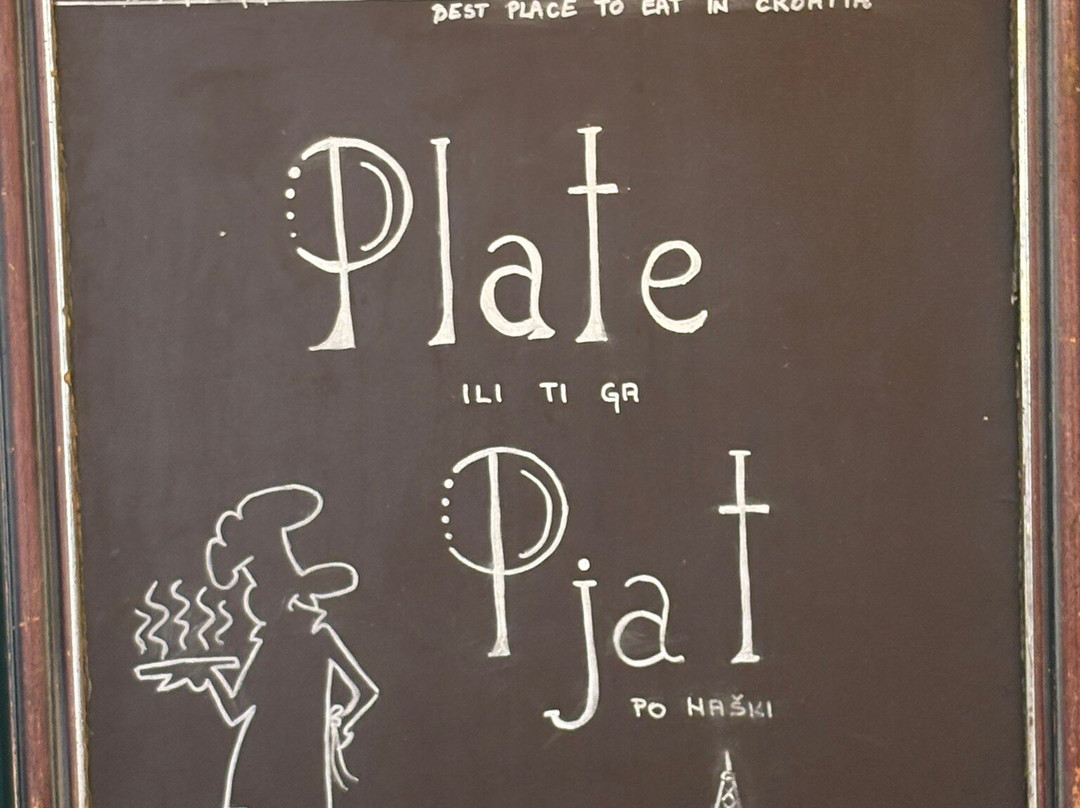 BEST PLACE TO EAT IN CROATIA
Plate
ILI TI GA
Pjat
PO NAŠKI